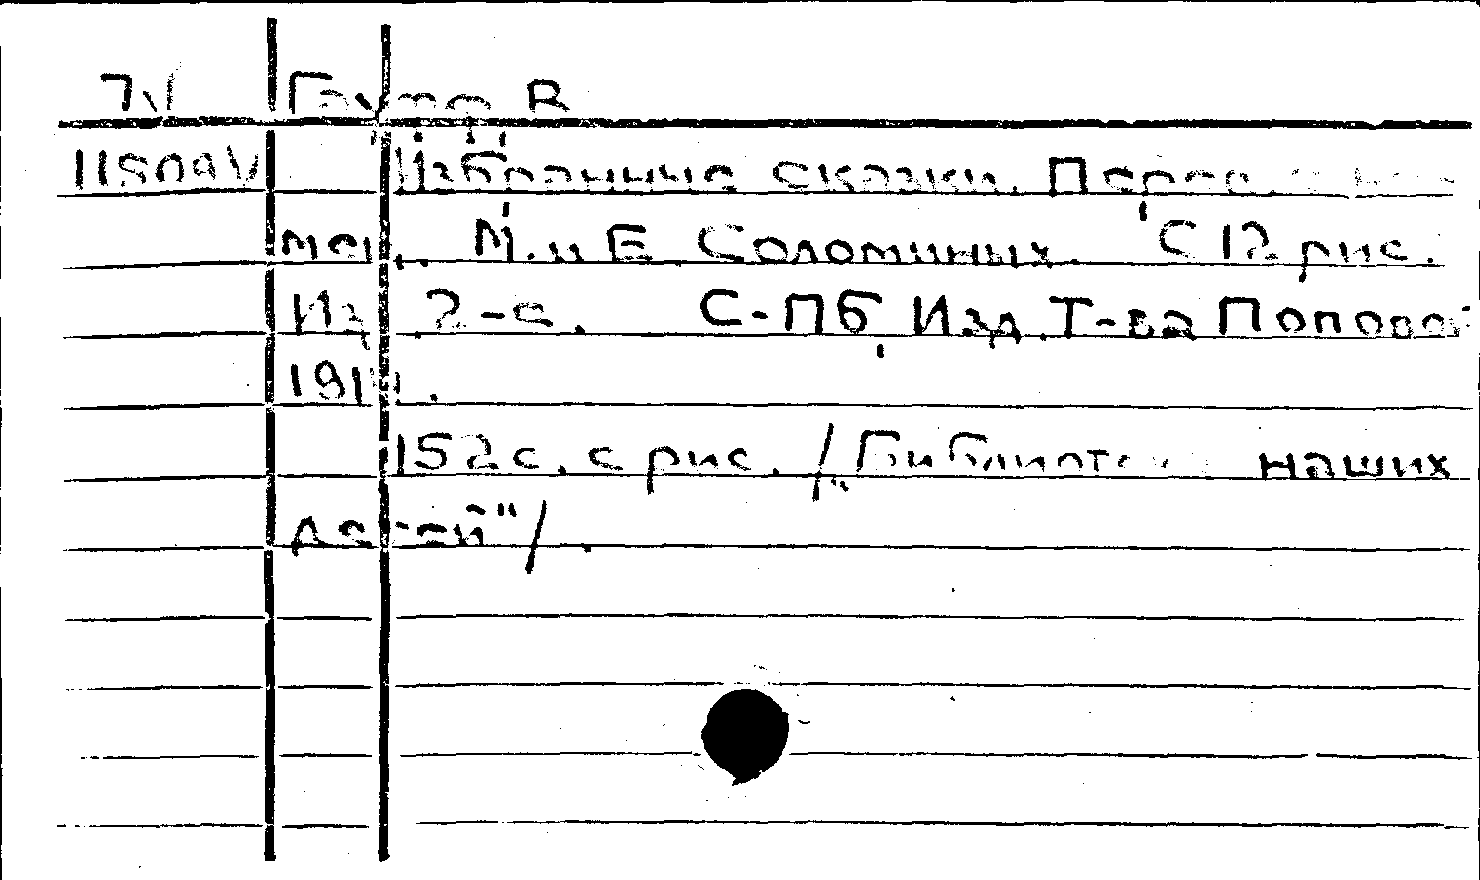 Гауф В.
Избранные сказки. Перев. с
нем. М. и Е. Соломиных. С 12 рис.
Изд. 2-е. С-Пб, Изд. Т-ва Поповой
152 с. с рис. /„Библиотека наших
детей"/.